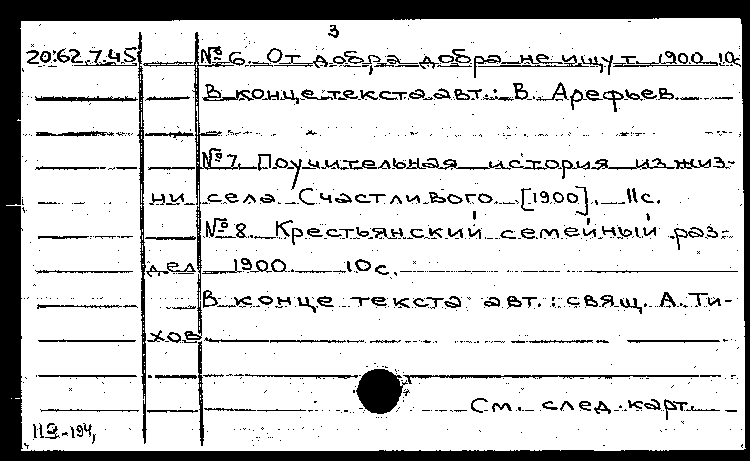 3
20:62.7.45 № 6. От добра добра не ищут. 1900 10с
В конце текста авт.: В. Арефьев
№ 7. Поучительная история из жиз-
ни села Счастливого [1900]. 11с.
№ 8. Крестьянский семейный раз-
дел 1900. 10с.
В конце текста авт.: свящ. А. Ти-
хов
См. след. карт.